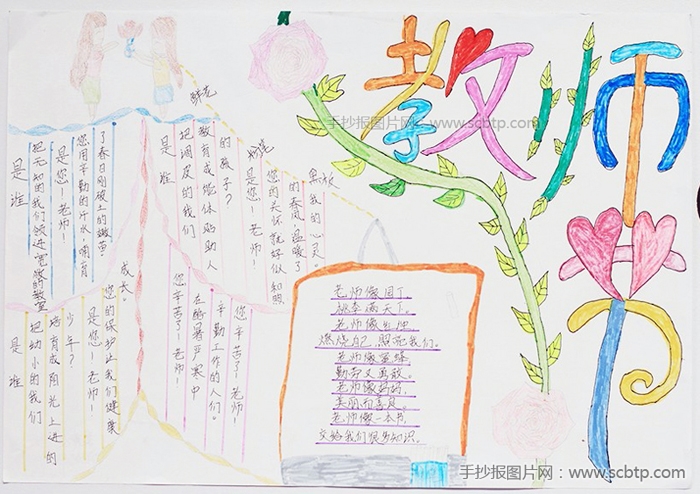 教师节
手抄报图片网：www.scbtp.com
献花
黑板
是谁
把无知的我们领进宽敞的教室
是您！老师！
您用辛勤的汗水哺育
了春日刚破土的嫩苗！
是谁
把调皮的我们
教育成能体贴助人
的孩子？
是您！老师！
您的关怀就好似和煦
的春风温暖了
我的心灵。
是谁
把幼小的我们
培育成阳光上进的
少年？
是您！老师！
您的保护让我们健康
成长。
您辛苦了！老师！
在酷暑严寒中
辛勤工作的人们。
您辛苦了！老师！
老师像园丁
桃李满天下。
老师像
燃烧自己，照亮我们。
老师像蜜蜂
勤劳又勇敢。
老师像
美丽而高贵。
老师像一本书
交给我们很多知识。
手抄报图片网：www.scbtp.com